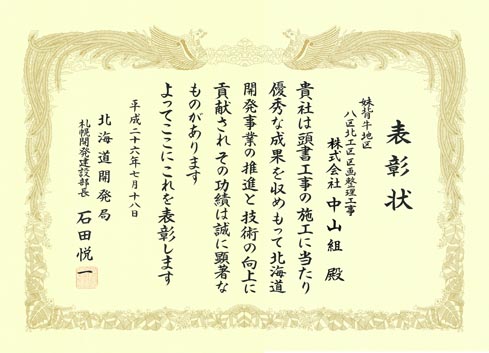 表彰状
妹背牛地区
八区北工区区画整理工事
株式会社 中山組 殿
貴社は頭書工事の施工に当たり
優秀な成果を収めもって北海道
開発事業の推進と技術の向上に
貢献されその功績は誠に顕著な
ものがあります
よってここにこれを表彰します
平成二十六年七月十八日
北海道開発局
札幌開発建設部長 石田悦一